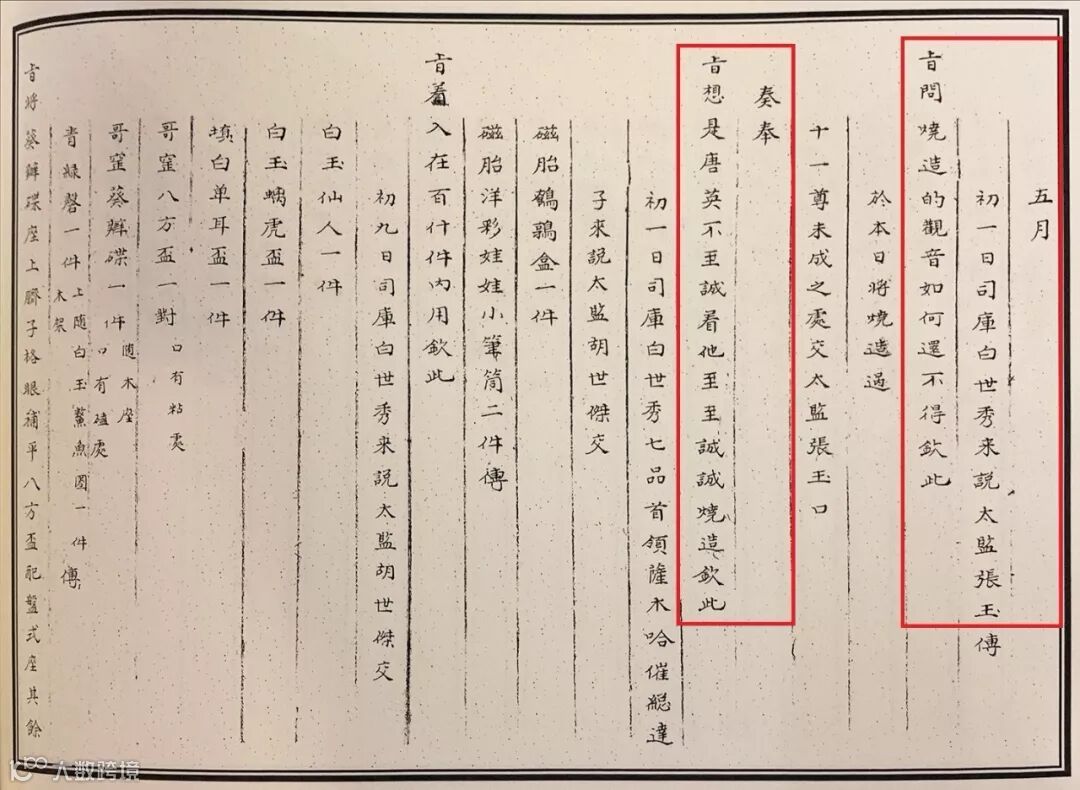 五月
初一日司庫白世秀来説太監張玉傳
旨問燒造的觀音如何還不得欽此
於本日將燒造過
十一尊未成之處交太監張玉口
奏奉
旨想是唐英不至誠着他至至誠誠燒造欽此
初一日司庫白世秀七品首領薩木哈催總達
子來説太監胡世傑交
磁胎鵪鶉盒一件
磁胎洋彩娃娃小筆筒二件傳
旨着入在百什件內用欽此
初九日司庫白世秀来説太監胡世傑交
白玉仙人一件
白玉螭虎盃一件
填白单耳盃一件
哥窑八方盃一對 口有粘處
哥窑葵瓣碟一件 随木座 口有磕處
青緑磬一件 上随白玉鰲魚圈一件 木架 傳
旨將葵瓣碟座上臍子格眼補平八方盃配盤式座其餘
大数跨境